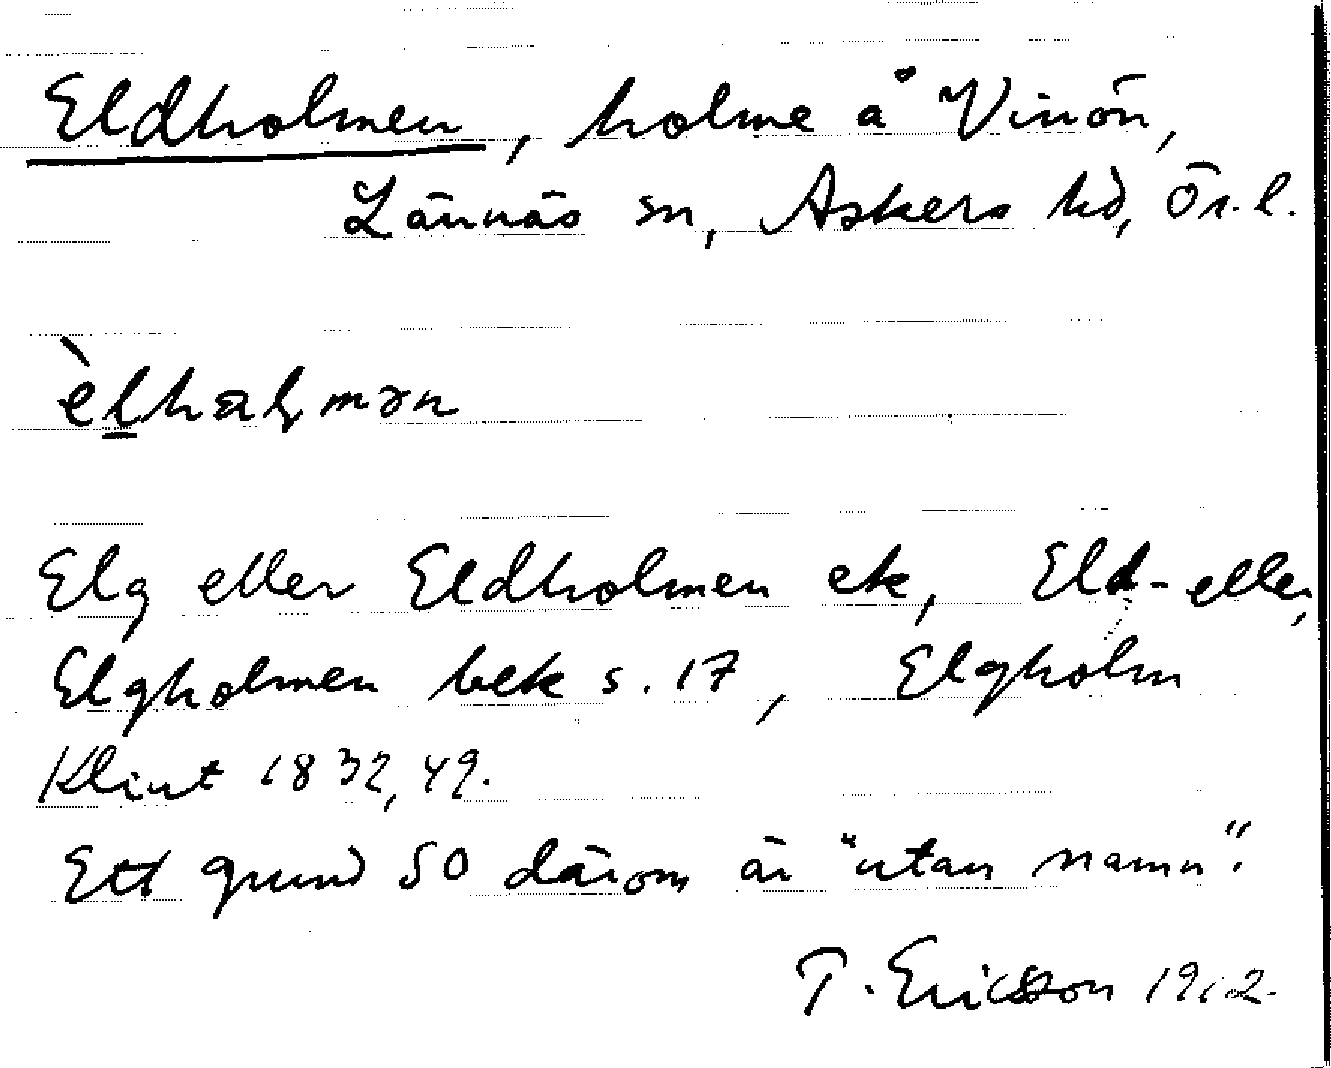 Eldholmen, holme å Vinön,
Lännäs sn, Askers hd, Ör. l.
èlhaɫmən
Elg eller Eldholmen ek, Eld- eller
Elgholmen bek s. 17, Elgholm
Klint 1832, 49.
Ett grund SO därom är "utan namn".
T. Ericsson 1912.